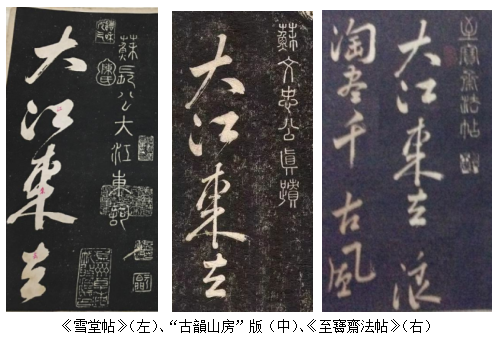 蘇長公大江東詞
大江東去
蘇文忠公眞蹟
大江東去
至寶齋法帖
大江東去浪
淘盡千古風
《雪堂帖》(左)、“古韻山房”版(中)、《至寶齋法帖》(右)